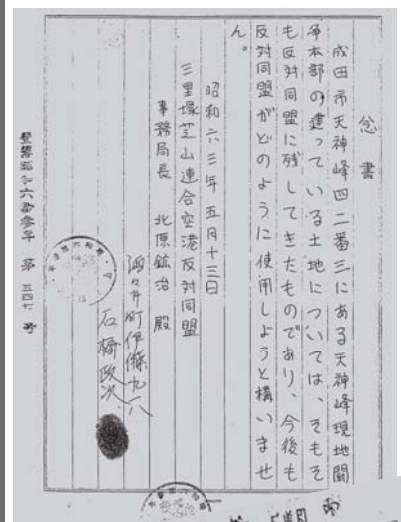 念書
成田市天神峰四二番三にある天神峰現地闘
争本部の建っている土地については、そもそ
も反対同盟に残してきたものであり、今後も
反対同盟がどのように使用しようと構いませ
ん。
昭和六三年五月十三日
三里塚芝山連合空港反対同盟
事務局長 北原鉱治 殿
酒々井町伊篠九八
石橋政次
登簿昭和六拾参年 第 三四七 号